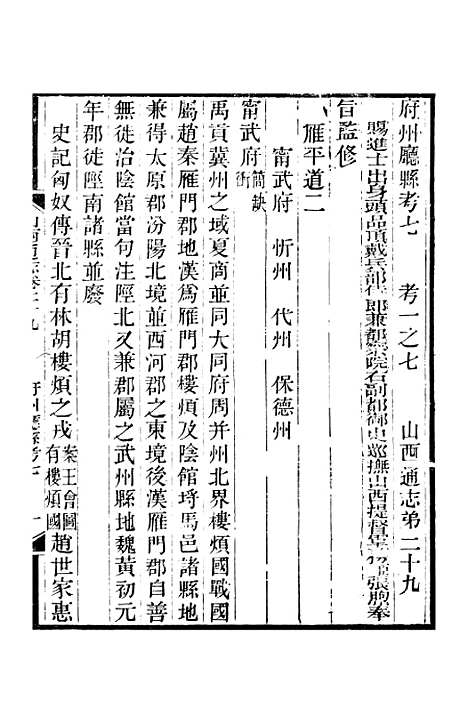 府州廳縣考七　考一之七　山西通志第二十九
賜進士出身頭品頂戴兵部侍郎兼都察院右副都御史巡撫山西提督軍務張煦奉
旨監修
雁平道二
甯武府　忻州　代州　保德州
甯武府衝簡缺
禹貢冀州之域夏商並同大同府周并州北界樓煩國戰國
屬趙秦雁門郡地漢爲雁門郡樓煩及陰館埒馬邑諸縣地
兼得太原郡汾陽北境並西河郡之東境後漢雁門郡自善
無徙治陰館當句注陘北又兼郡屬之武州縣地魏黃初元
年郡徙陘南諸縣並廢
史記匈奴傳晉北有林胡樓煩之戎案王會圖有樓煩國趙世家惠